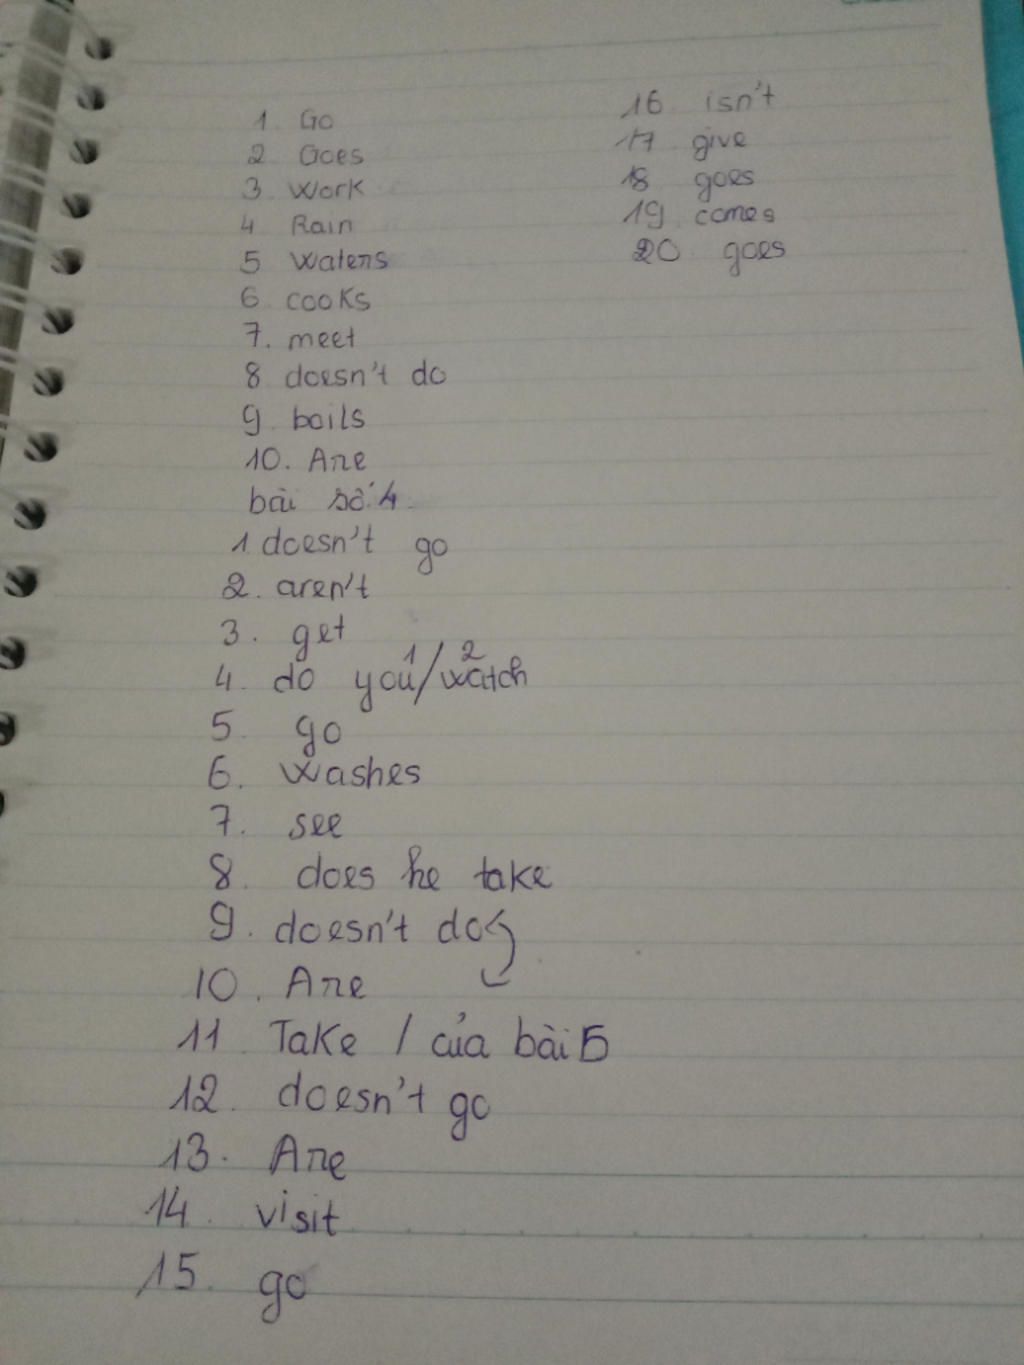 1 Go
2 Goes
3. Work
4 Rain
5 Waters
6 cooks
7. meet
8 doesn't do
9. boils
10. Are
bài số 4.
1. doesn't go
2. aren't
3. get
4. do you1/watch2
5. go
6. washes
7. see
8. does he take
9. doesn't do
10. Are
11 Take / của bài 5
12. doesn't go
13. Are
14. visit
15. go
16 isn't
17 give
18 goes
19 comes
20 goes